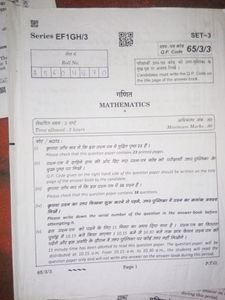 Series EF1GH/3
SET~3
प्रश्न-पत्र कोड
Q.P. Code 65/3/3
रोल नं.
Roll No.
परीक्षार्थी प्रश्न-पत्र कोड को उत्तर-पुस्तिका के
मुख-पृष्ठ पर अवश्य लिखें ।
Candidates must write the Q.P. Code on
the title page of the answer-book.
गणित
MATHEMATICS
निर्धारित समय : 3 घण्टे
अधिकतम अंक : 80
Time allowed : 3 hours
Maximum Marks : 80
नोट / NOTE :
(i) कृपया जाँच कर लें कि इस प्रश्न-पत्र में मुद्रित पृष्ठ 23 हैं ।
Please check that this question paper contains 23 printed pages.
(ii) प्रश्न-पत्र में दाहिने हाथ की ओर दिए गए प्रश्न-पत्र कोड को परीक्षार्थी उत्तर-पुस्तिका के
मुख-पृष्ठ पर लिखें ।
Q.P. Code given on the right hand side of the question paper should be written on the title
page of the answer-book by the candidate.
(iii) कृपया जाँच कर लें कि इस प्रश्न-पत्र में 38 प्रश्न हैं ।
Please check that this question paper contains 38 questions.
(iv) कृपया प्रश्न का उत्तर लिखना शुरू करने से पहले, उत्तर-पुस्तिका में प्रश्न का क्रमांक अवश्य
लिखें ।
Please write down the serial number of the question in the answer-book before
attempting it.
(v) इस प्रश्न-पत्र को पढ़ने के लिए 15 मिनट का समय दिया गया है । प्रश्न-पत्र का वितरण
पूर्वाह्न में 10.15 बजे किया जाएगा । 10.15 बजे से 10.30 बजे तक छात्र केवल प्रश्न-पत्र को
पढ़ेंगे और इस अवधि के दौरान वे उत्तर-पुस्तिका पर कोई उत्तर नहीं लिखेंगे ।
15 minute time has been allotted to read this question paper. The question paper will be
distributed at 10.15 a.m. From 10.15 a.m. to 10.30 a.m., the students will read the
question paper only and will not write any answer on the answer-book during this period.
65/3/3
Page 1
P.T.O.